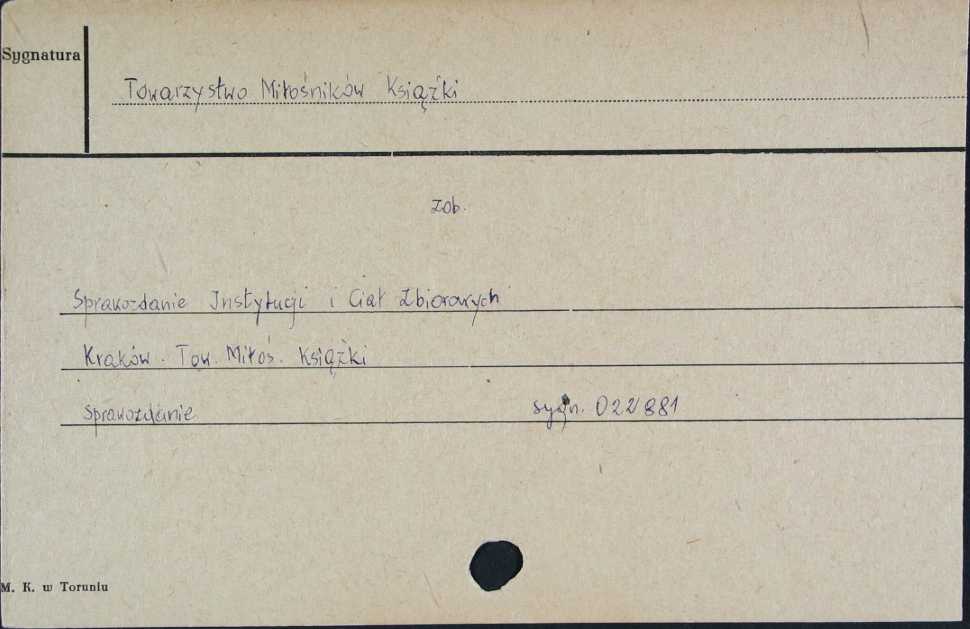 Sygnatura
Towarzystwo Miłośników Książki
zob.
Sprawozdanie Instytucji i Ciał Zbiorowych
Kraków. Tow. Miłoś. Książki
Sprawozdanie sygn. 022881
M. K. w Toruniu